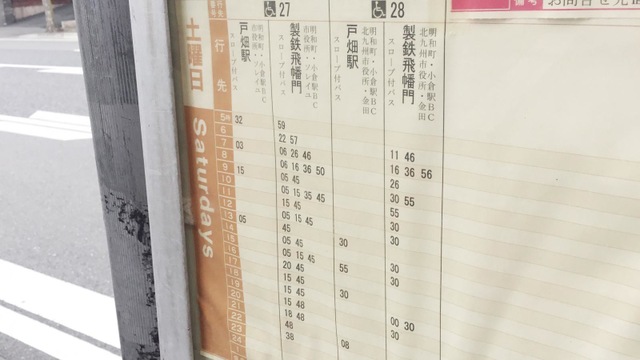 27
28
土曜日
Saturdays
行先
戸畑駅
スロープ付バス
明和町・小倉駅BC
製鉄飛幡門
スロープ付バス
戸畑駅
スロープ付バス
明和町・小倉駅BC
北九州市役所・金田
製鉄飛幡門
明和町・小倉駅BC
北九州市役所・金田
スロープ付バス
5 32
6 59
7 22 57
8 03 06 26 46 11 46
9 06 16 36 50 16 36 56
10 15 05 45 26
11 05 15 35 45 30 55
12 15 45 55
13 05 05 15 45 55
14 45 30
15 05 45 30 30
16 05 15 45
17 20 45 55 30
18 15 45 30
19 15 45 30
20 15 45
21 15 48 00 30
22 18 48 30
23 48
24 38 08